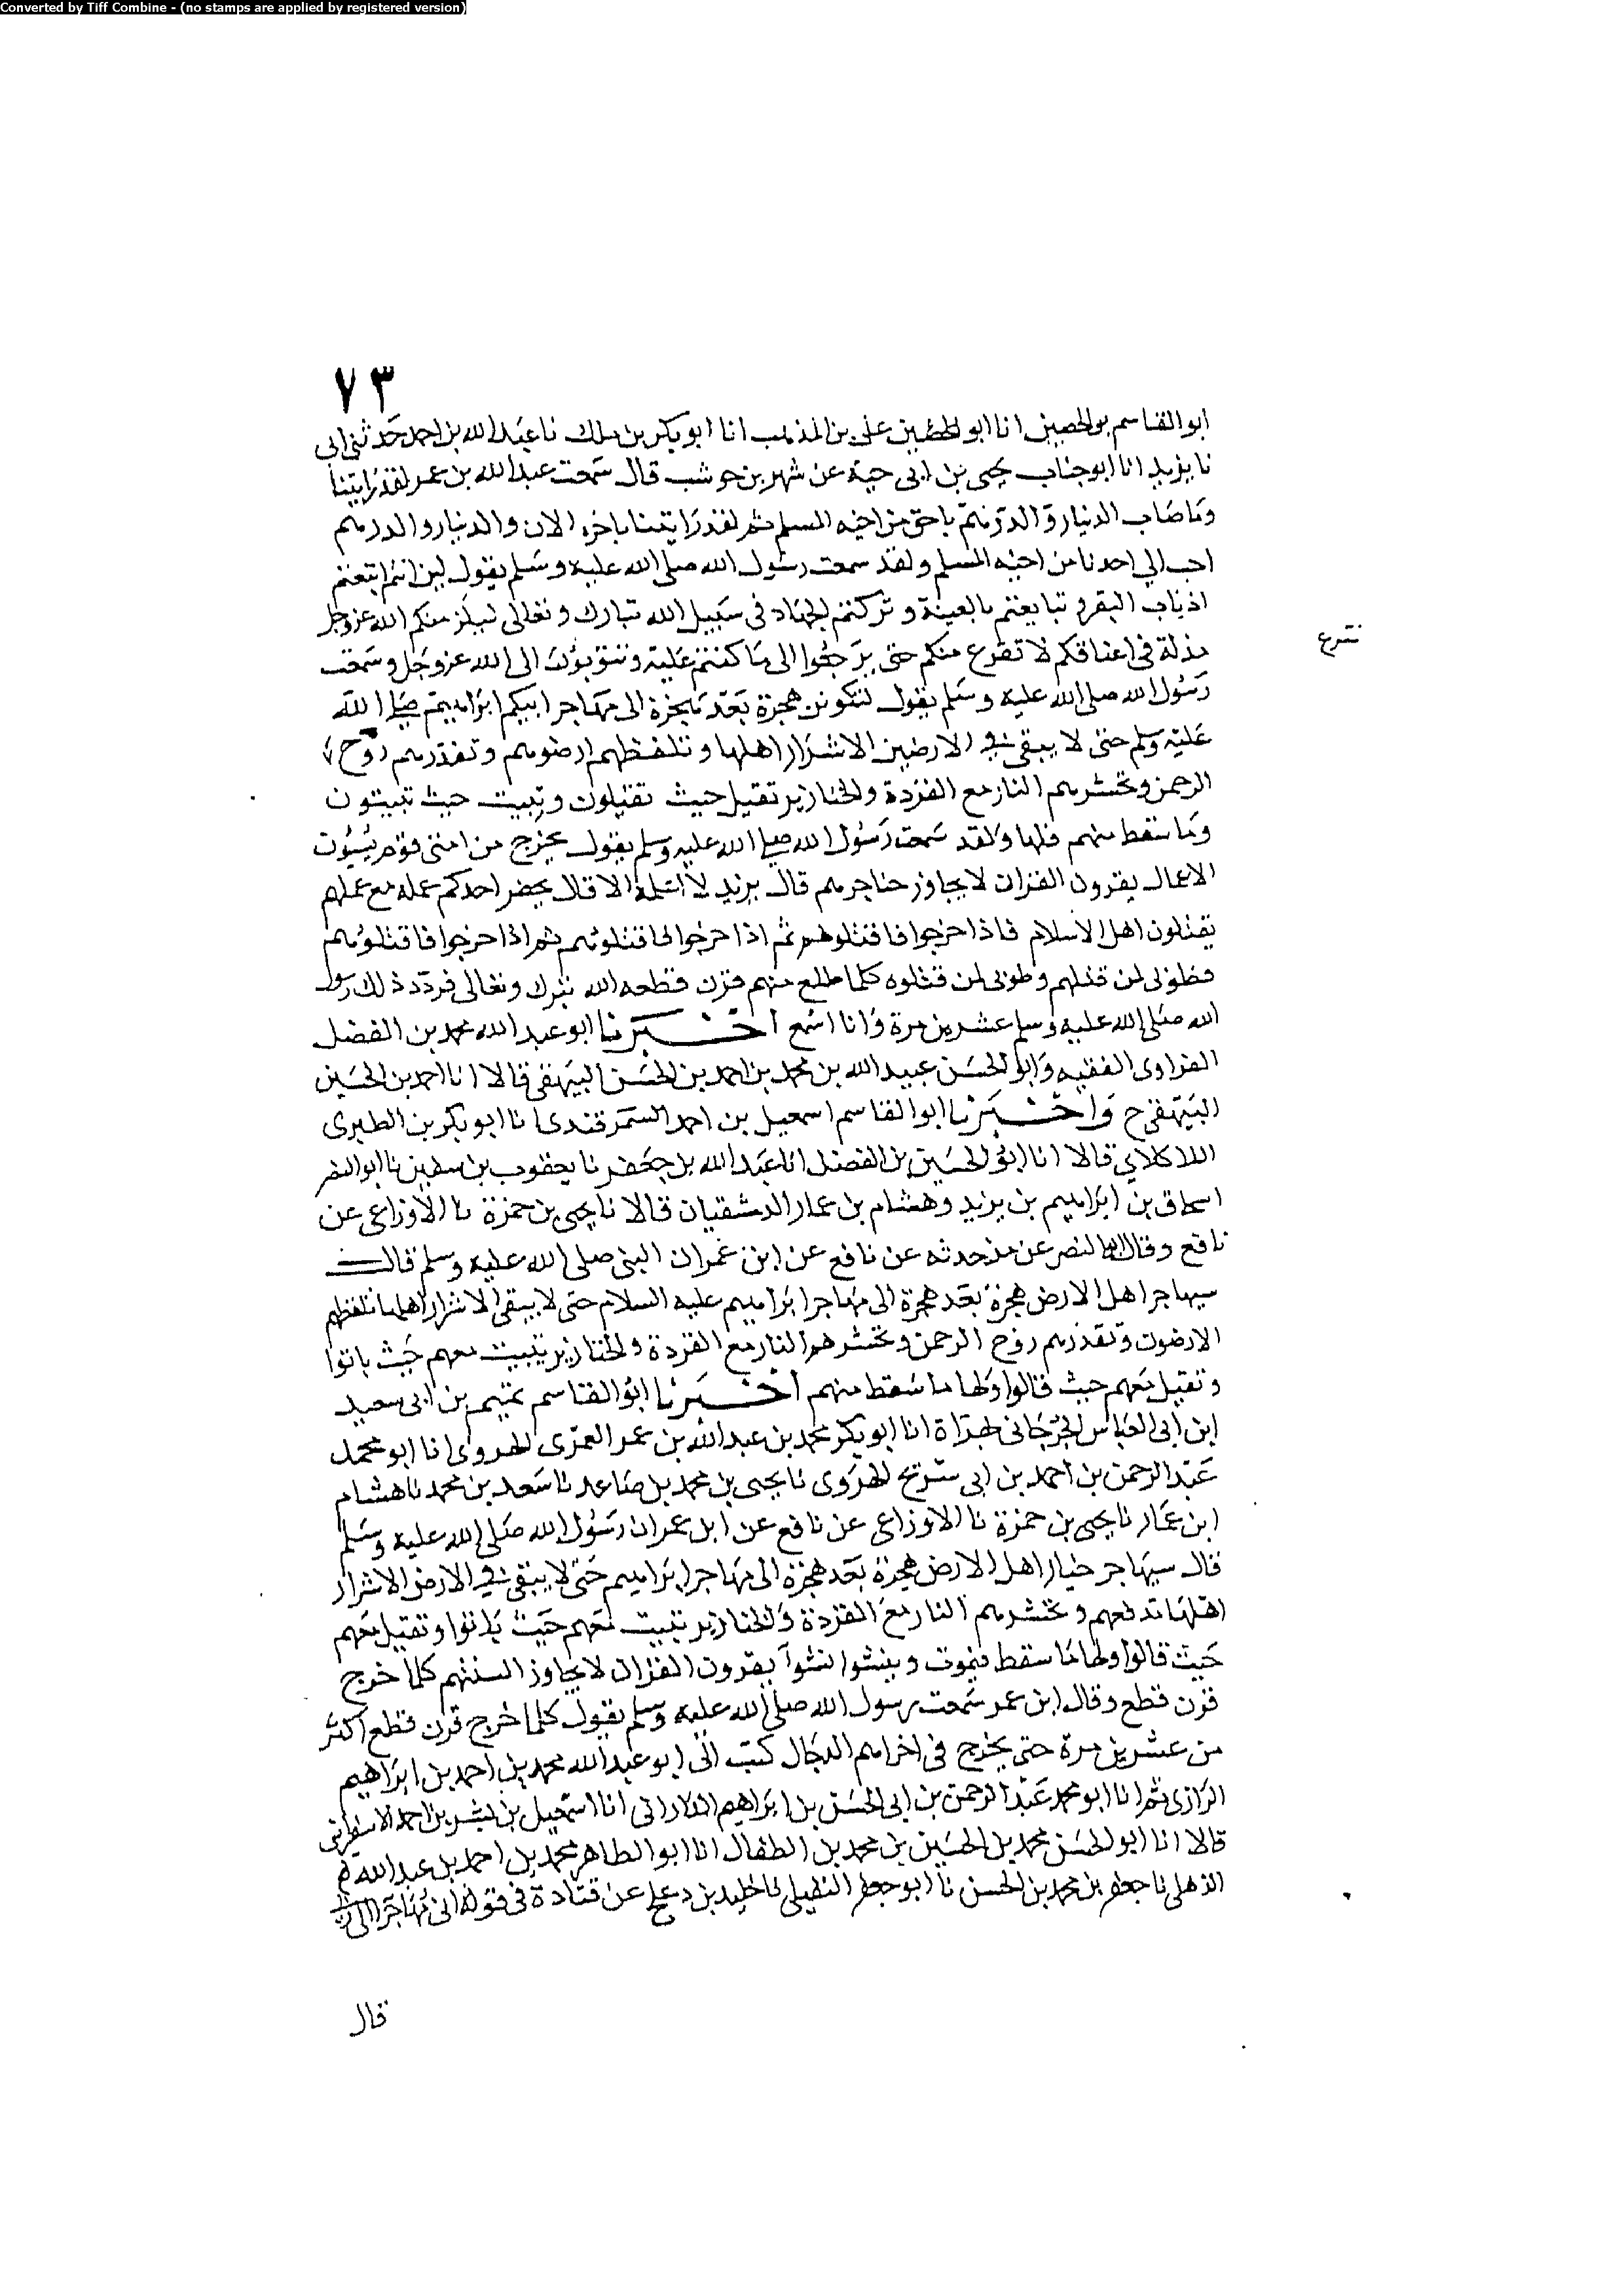 Converted by Tiff Combine - (no stamps are applied by registered version)
٧٣
ابو القاسم بن الحصين انا ابو علي بن المذهب انا ابو بكر بن ملك نا عبد الله بن احمد حدثني ابي
نا يزيد انا ابو جناب يحيى بن ابي حية عن شهر بن حوشب قال سمعت عبد الله بن عمر لقد رايتنا
وما صاحب الدينار والدرهم باحق من اخيه المسلم ثم لقد رايتنا باخره الان والدينار والدرهم
احب الي احدنا من اخيه المسلم ولقد سمعت رسول الله صلى الله عليه وسلم يقول لين انتم اتبعتم
اذناب البقر و تبايعتم بالعينة و تركتم الجهاد في سبيل الله تبارك وتعالى ليلزمنكم الله عز وجل
مذلة في اعناقكم لا تقرع منكم حتى يرجعوا الى ما كنتم عليه وتتوبون الى الله عز وجل وسمعت
رسول الله صلى الله عليه وسلم يقول لتكونن هجرة بعد هجرة الى مهاجر ابيكم ابراهيم صلى الله
عليه وسلم حتى لا يبقى في الارضين الا شرار اهلها و تلفظهم ارضوهم و تقذرهم روح
الرحمن وتحشرهم النار مع القردة والخنازير تقيل حيث تقيلون وتبيت حيث تبيتون
وما سقط منهم فلها ولقد سمعت رسول الله صلى الله عليه وسلم يقول يخرج من امتي قوم يسيون
الاعمال يقرون القران لا يجاوز حناجرهم قال يزيد لا اعلمه الا قال يحقر احدكم عمله مع عملهم
يقتلون اهل الاسلام فاذا خرجوا فاقتلوهم ثم اذا خرجوا فاقتلوهم ثم اذا خرجوا فاقتلوهم
فطوبى لمن قتلهم وطوبى لمن قتلوه كلما طلع منهم قرن قطعه الله تبرك وتعالى فردد ذلك رسول
الله صلى الله عليه وسلم عشرين مرة وانا اسمع اخبرنا ابو عبد الله محمد بن الفضل
الفراوي الفقيه وابو الحسن عبيد الله بن محمد بن احمد بن الحسن البيهقي قالا انا احمد بن الحسين
البيهقي ح واخبرنا ابو القاسم اسمعيل بن احمد السمرقندي انا ابو بكر بن الطبري
اللالكاي قالا انا ابو الحسين بن الفضل انا عبد الله بن جعفر نا يعقوب بن سفين نا ابو النضر
اسحاق بن ابراهيم بن يزيد وهشام بن عمار الدمشقيان قالا نا يحيى بن حمزة نا الاوزاعي عن
نافع وقال ابو النضر عن من حدثه عن نافع عن ابن عمر ان النبي صلى الله عليه وسلم قال
سيهاجر اهل الارض هجرة بعد هجرة الى مهاجر ابراهيم عليه السلام حتى لا يبقى الا شرار اهلها تلفظهم
الارضون وتقذرهم روح الرحمن وتحشرهم النار مع القردة والخنازير تبيت معهم حيث باتوا
وتقيل معهم حيث قالوا ولها ما سقط منهم اخبرنا ابو القاسم تميم بن ابي سعيد
ابن ابي العباس الجرجاني بهراة انا ابو بكر محمد بن عبد الله بن عمر العمري الهروي انا ابو محمد
عبد الرحمن بن احمد بن ابي شريح الهروي نا يحيى بن محمد بن صاعد نا سعد بن محمد نا هشام
ابن عمار نا يحيى بن حمزة نا الاوزاعي عن نافع عن ابن عمر ان رسول الله صلى الله عليه وسلم
قال سيهاجر خيار اهل الارض هجرة بعد هجرة الى مهاجر ابراهيم حتى لا يبقى في الارض الا شرار
اهلها تدفعهم وتحشرهم النار مع القردة والخنازير تبيت معهم حيث باتوا وتقيل معهم
حيث قالوا ولها ما سقط فيموت وينشوا نشوا يقرون القران لا يجاوز السنتهم كلما خرج
قرن قطع وقال ابن عمر سمعت رسول الله صلى الله عليه وسلم يقول كلما خرج قرن قطع اكثر
من عشرين مرة حتى يخرج في اخراهم الدجال كتب الي ابو عبد الله محمد بن احمد بن ابراهيم
الرازي ثم انا ابو محمد عبد الرحمن بن ابي الحسن بن ابراهيم الداراني انا اسمعيل بن بشر بن احمد الاسفرايني
قالا انا ابو الحسن محمد بن الحسين بن محمد بن الطفال انا ابو الطاهر محمد بن احمد بن عبد الله
الذهلي نا جعفر بن محمد بن الحسن نا ابو جعفر النفيلي نا خليد بن دعلج عن قتادة في قوله اني مهاجر الى
قال